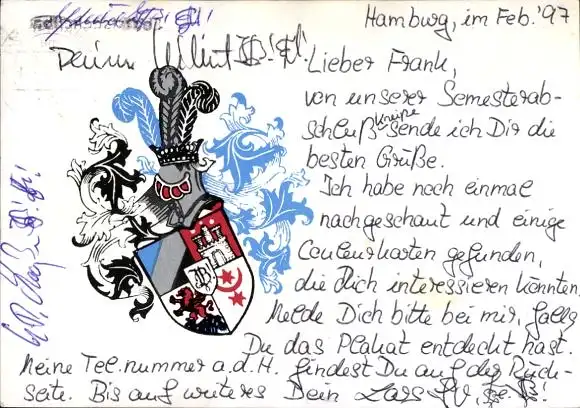 Hamburg, im Feb. '97
Lieber Frank,
von unserer Semesterab-
schlußkneipe sende ich Dir die
besten Grüße.
Ich habe noch einmal
nachgeschaut und einige
Couleurkarten gefunden,
die Dich interessieren könnten.
Melde Dich bitte bei mir, falls
Du das Plakat entdeckt hast.
Meine Tel.nummer a.d.H. findest Du auf der Rück-
seite. Bis auf weiteres Dein Lars